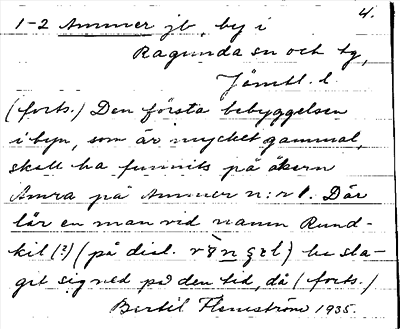 4.
1-2 Ammer jb, by i
Ragunda sn och tg,
Jämtl. l.
(forts.) Den första bebyggelsen
i byn, som är mycket gammal,
skall ha funnits på åkern
Amra på Ammer n:r 1. Där
lär en man vid namn Rund-
kil (?) (på dial. ) ha sla-
git sig ned på den tid, då (forts.)
Bertil Flemström 1935.